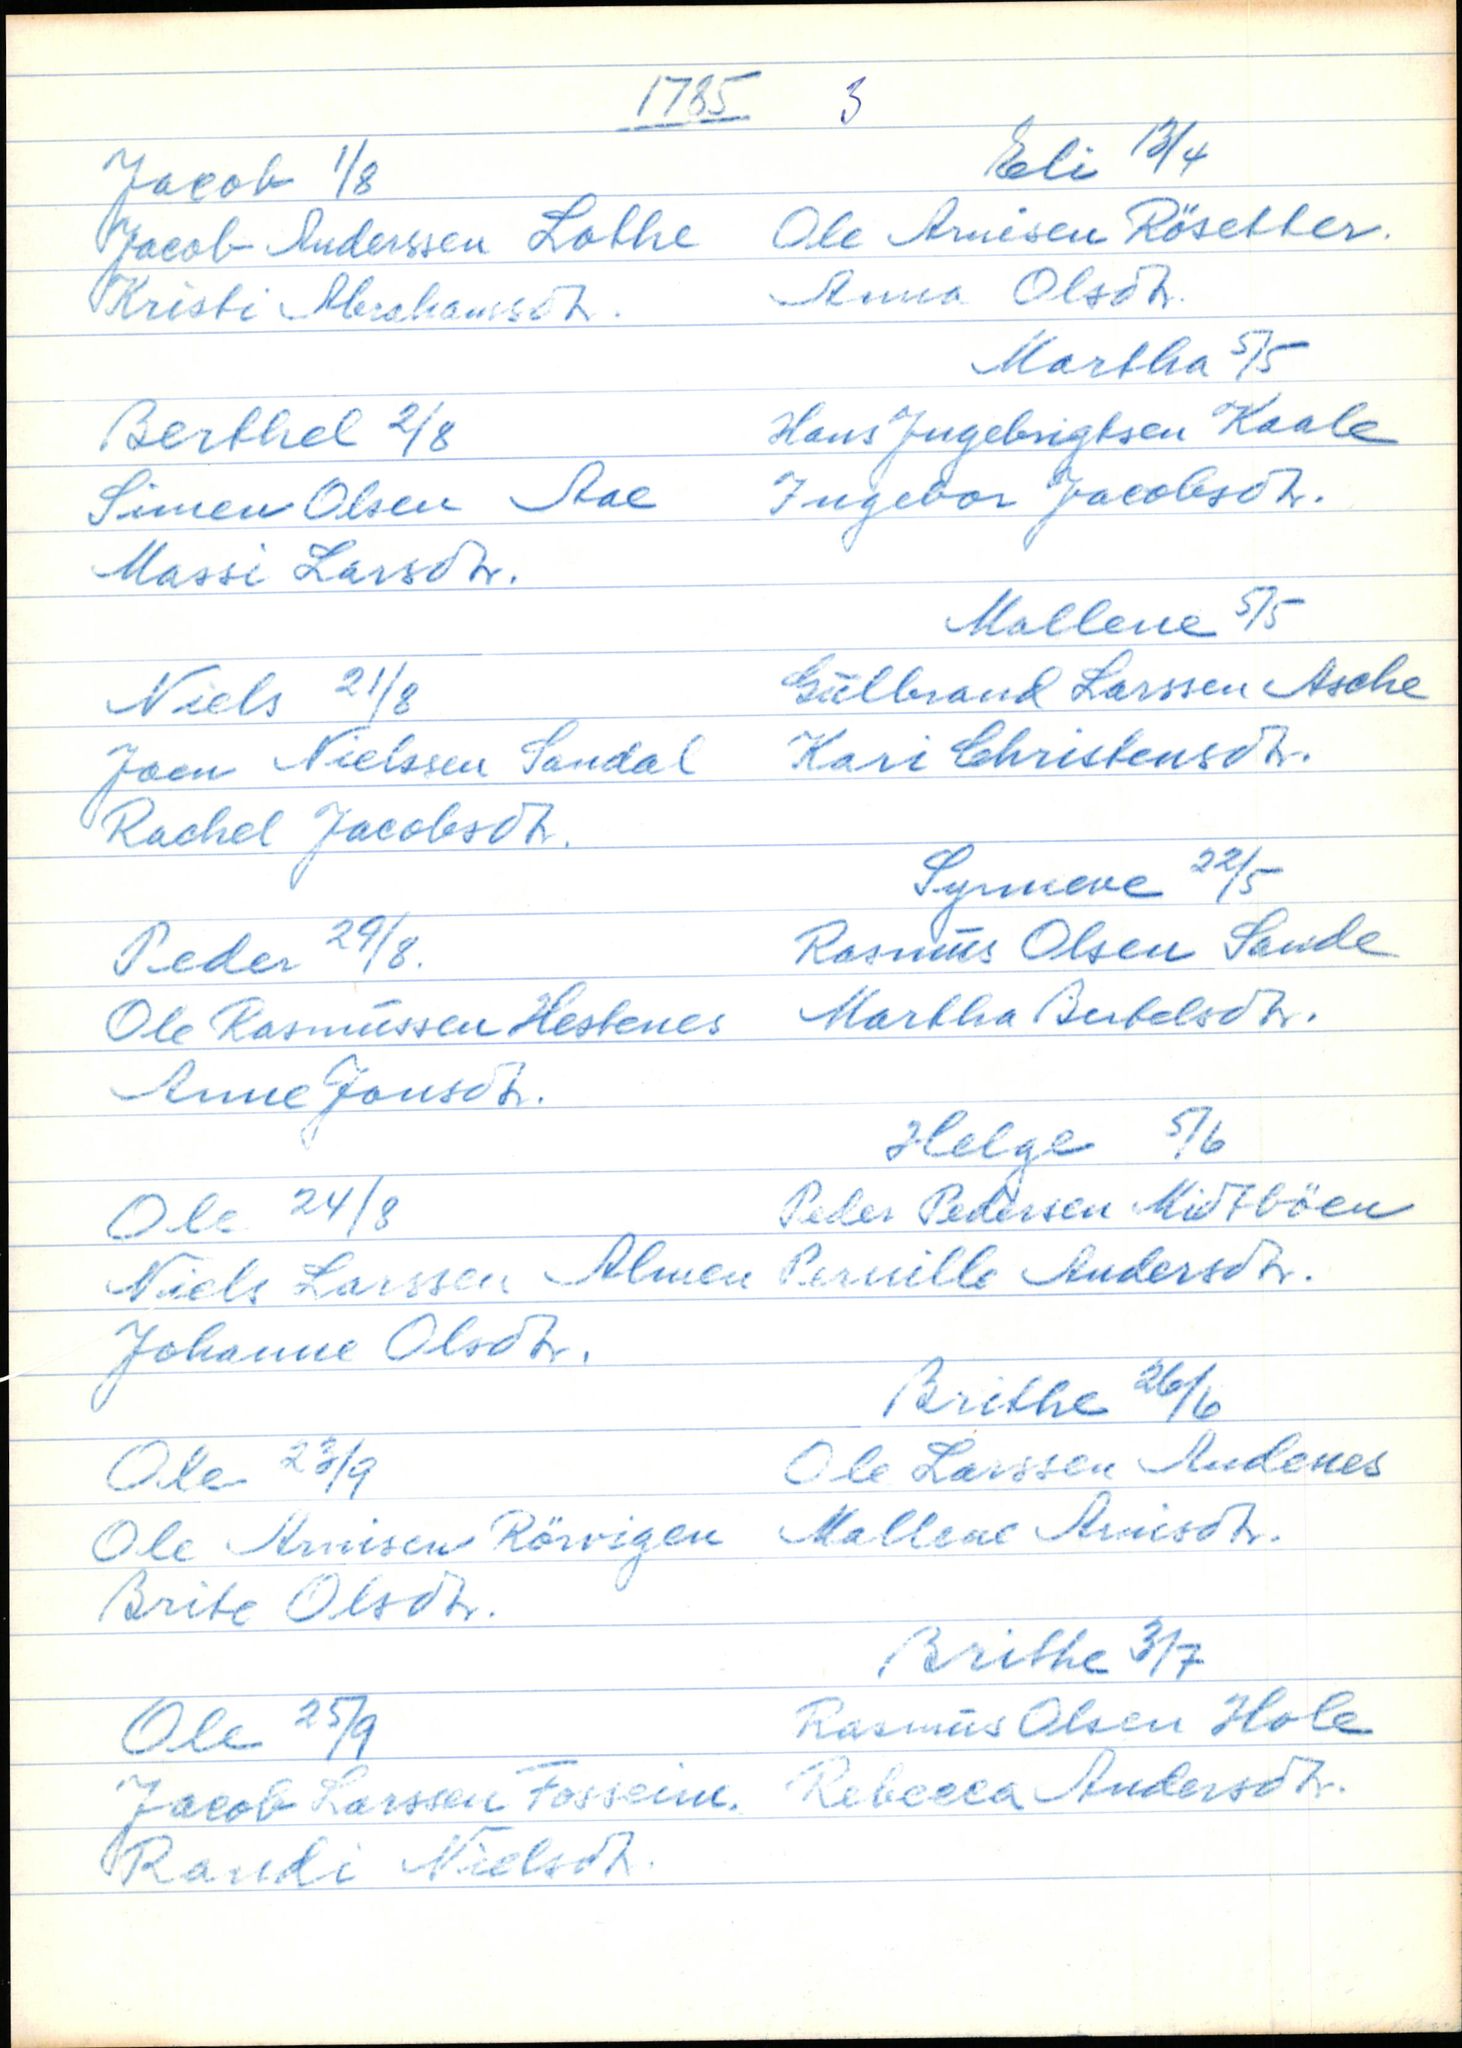 1785 3
Jacob 1/8
Jacob Anderssen Lothe
Kristi Abrahamsdtr.
Berthel 2/8
Simen Olsen Aae
Massi Larsdtr.
Niels 21/8
Joen Nielssen Sandal
Rachel Jacobsdtr.
Peder 29/8.
Ole Rasmüssen Hestenes
Anne Jonsdtr.
Ole 24/8
Niels Larssen Almen
Johanne Olsdtr.
Ole 23/9
Ole Arnisen Rörvigen
Brite Olsdtr.
Ole 25/9
Jacob Larssen Fosseim.
Randi Nielsdtr.
Eli 13/4
Ole Arnisen Rösetter.
Anna Olsdtr.
Martha 5/5
Hans Jngebrigtsen Kaale
Ingebor Jacobsdtr.
Mallene 5/5
Gülbrand Larssen Asche
Kari Christensdtr.
Synneve 22/5
Rasmüs Olsen Sande
Martha Bertelsdtr.
Helge 5/6
Peder Pedersen Midtböen
Pernille Andersdtr.
Brithe 26/6
Ole Larssen Andenes
Mallene Arnisdtr.
Brithe 3/7
Rasmüs Olsen Hole
Rebecca Andersdtr.